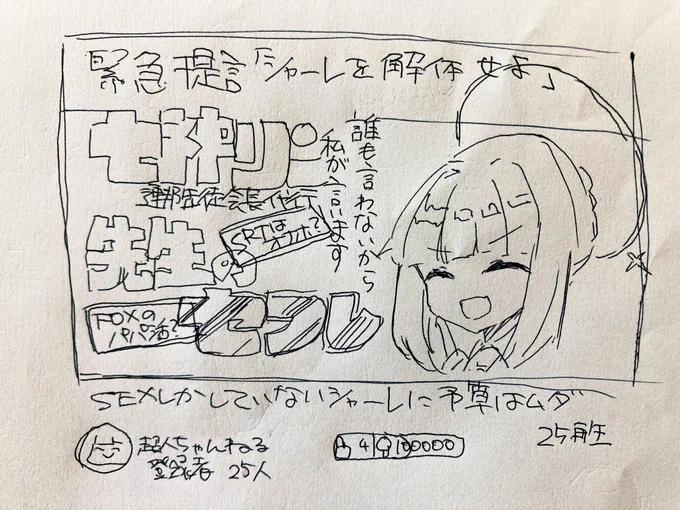 緊急提言「シャーレを解体せよ」
七神リン
連邦生徒会長代行
誰も言わないから
私が言います
先生
の
SRTは
オナホ?
FOXの
パパ活?
セフレ
SEXしかしていないシャーレに予算はムダ
超人ちゃんねる
登録者 25人
4
100000
25再生